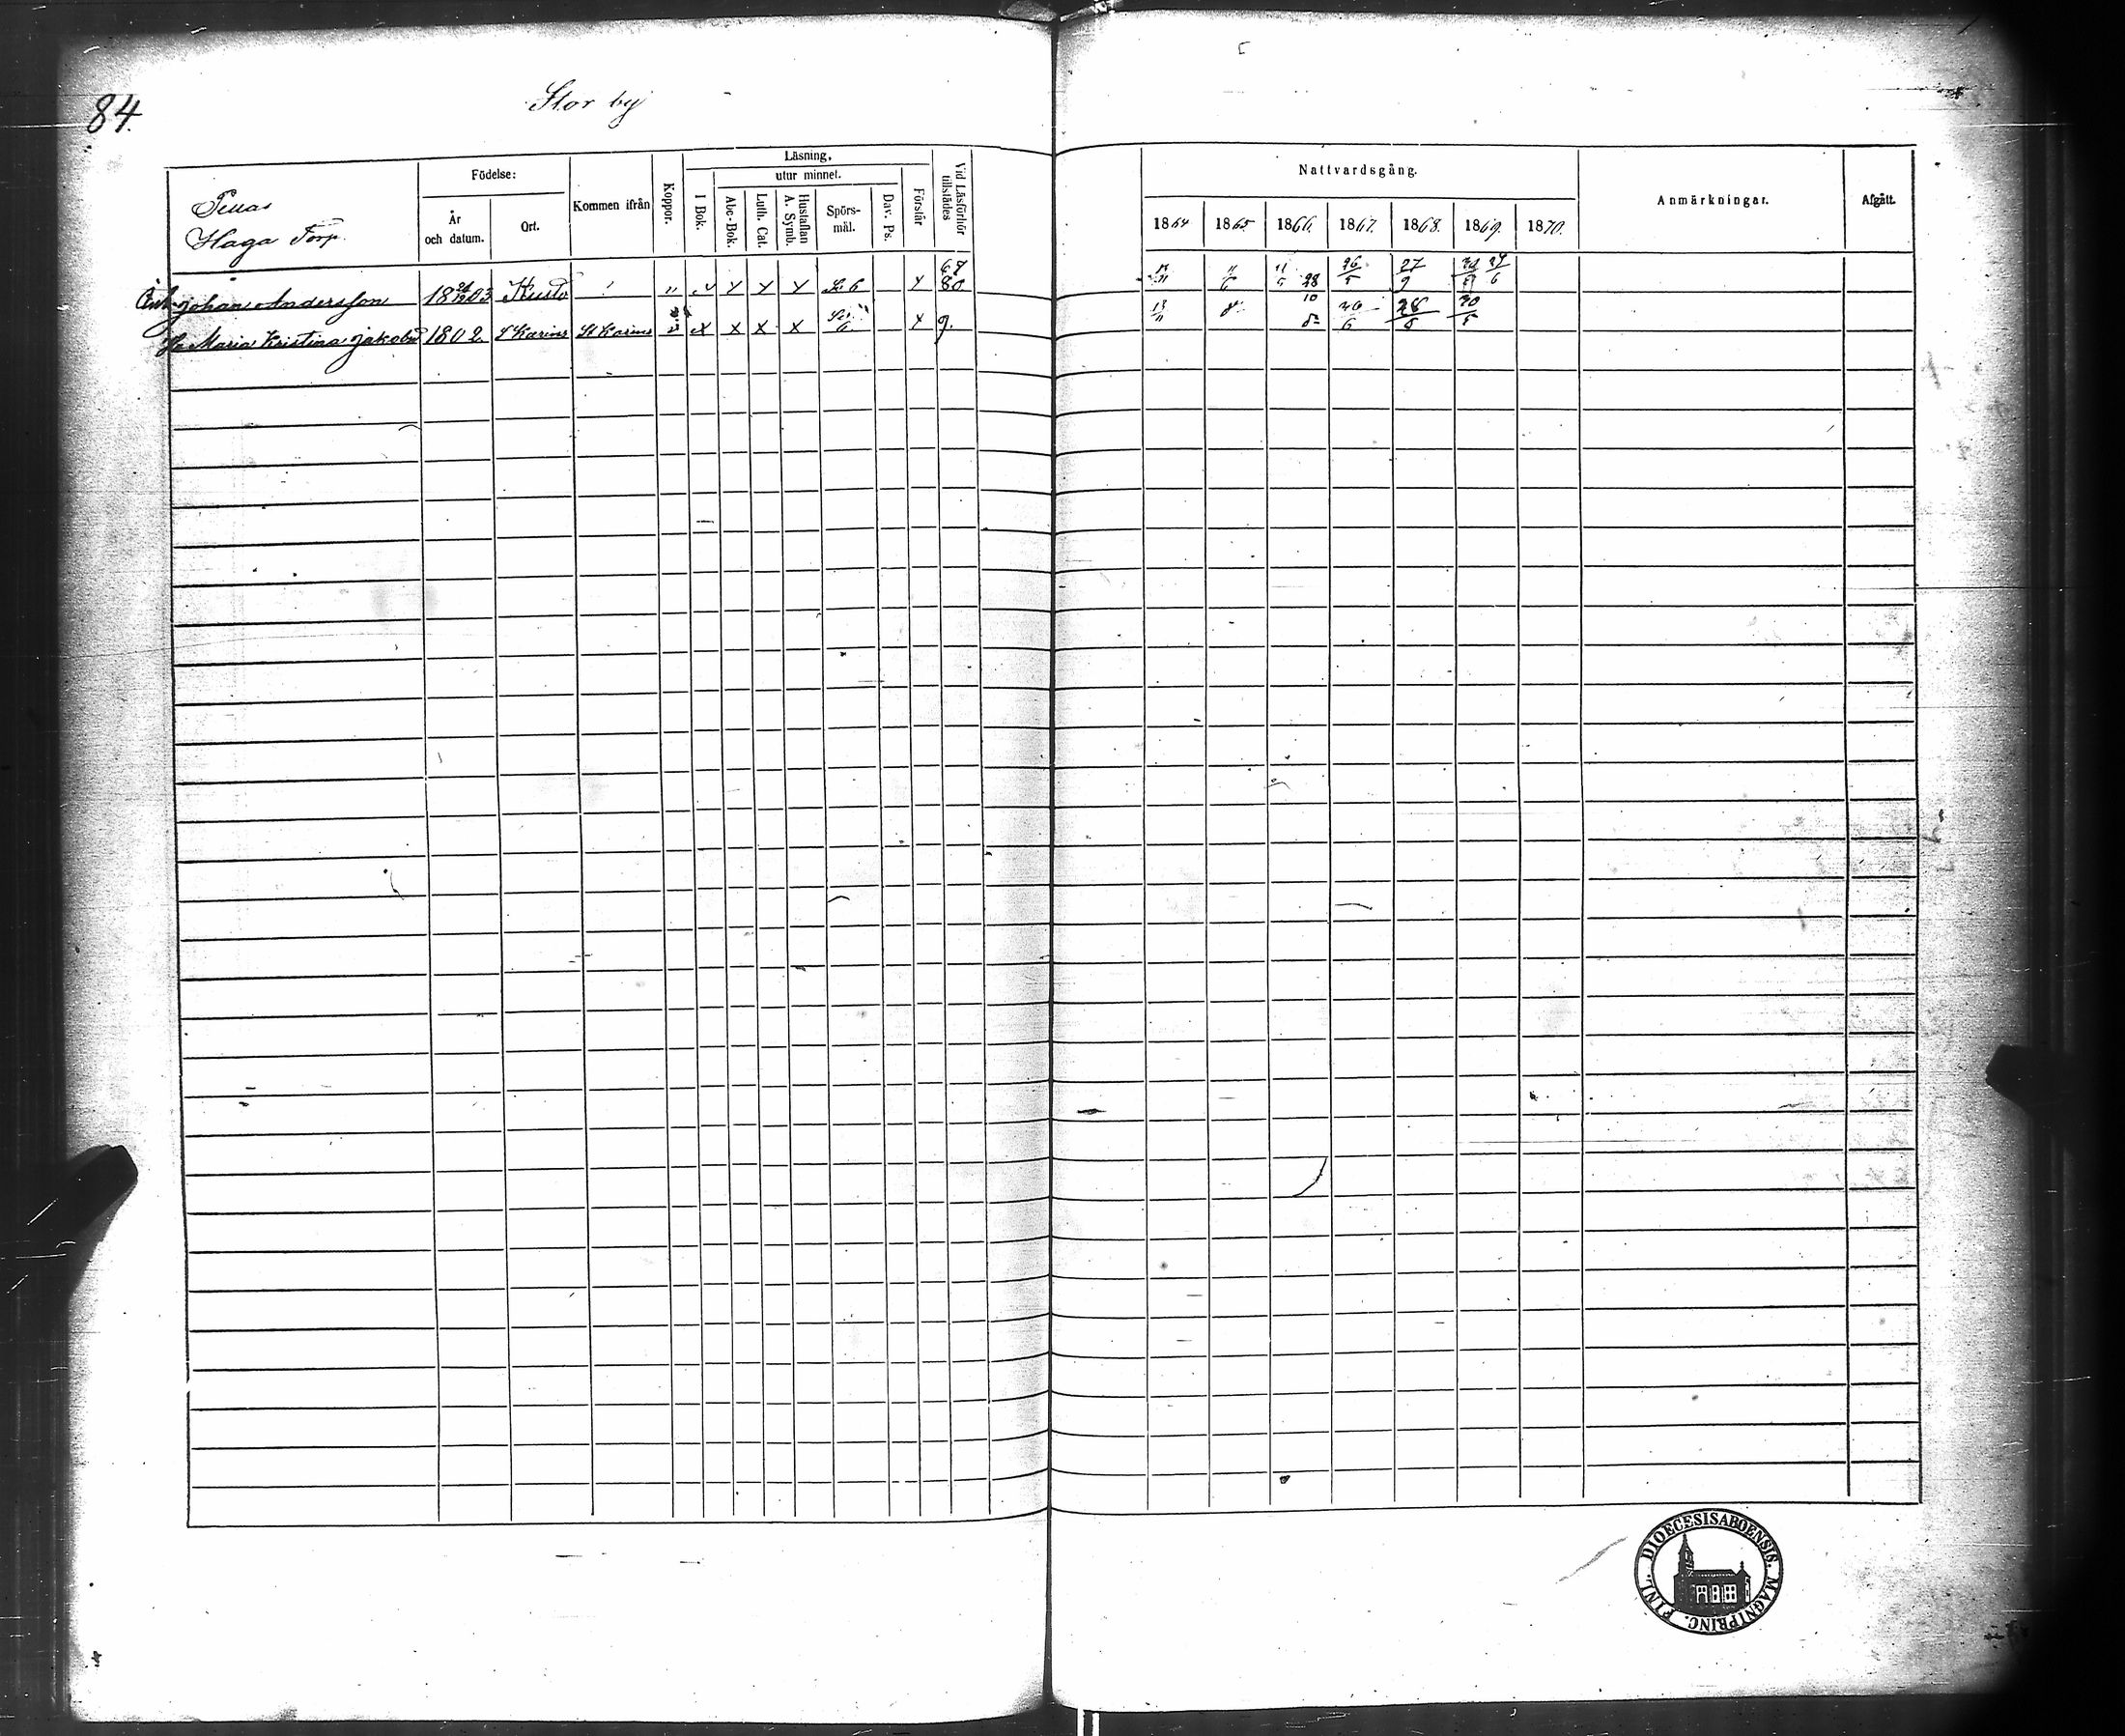 84.
Stor by
Haga Torp.
Födelse:
År och datum.
Ort.
Kommen ifrån
Koppor.
Läsning.
utur minnet.
I Bok.
Abc-Bok.
Luth. Cat.
Hustaflan A. Symb.
Spörs-mål.
Dav. Ps.
Förstår
Vid Läsförhör tillstädes
Nattvardsgång.
1864 1865 1866. 1867. 1868. 1869. 1870.
Anmärkningar.
Afgått.
Johan Andersson 18 24/12 03 Kusto " x x x x 6 x 67 80 11/6 26/5 27/9 24/6
H. Maria Kristina Jakobsd 1802. S Karins St Karins x x x x 6. x 9. 28/6 30/5
FINL. DIOECESIS ABOENSIS. MAGNI PRINC.